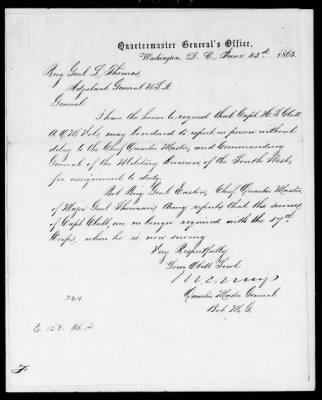 Quartermaster General's Office,
Washington, D. C., June 23d 1865.
Brig Genl L. Thomas,
Adjutant General U.S.A.
General
I have the honor to request that Capt H. T.
A Q M Vols, may be ordered to report in person without
delay to the Chief Quarter Master, and Commanding
General of the Military Division of the South West,
for assignment to duty.
Bvt Brig Genl Easton, Chief Quarter Master
of Major Genl Sherman's Army reports that the services
of Capt are no longer required with the 17th
Corps, where he is now serving
Very Respectfully
Your Obdt Servt
Quarter Master General
Bvt M. G.